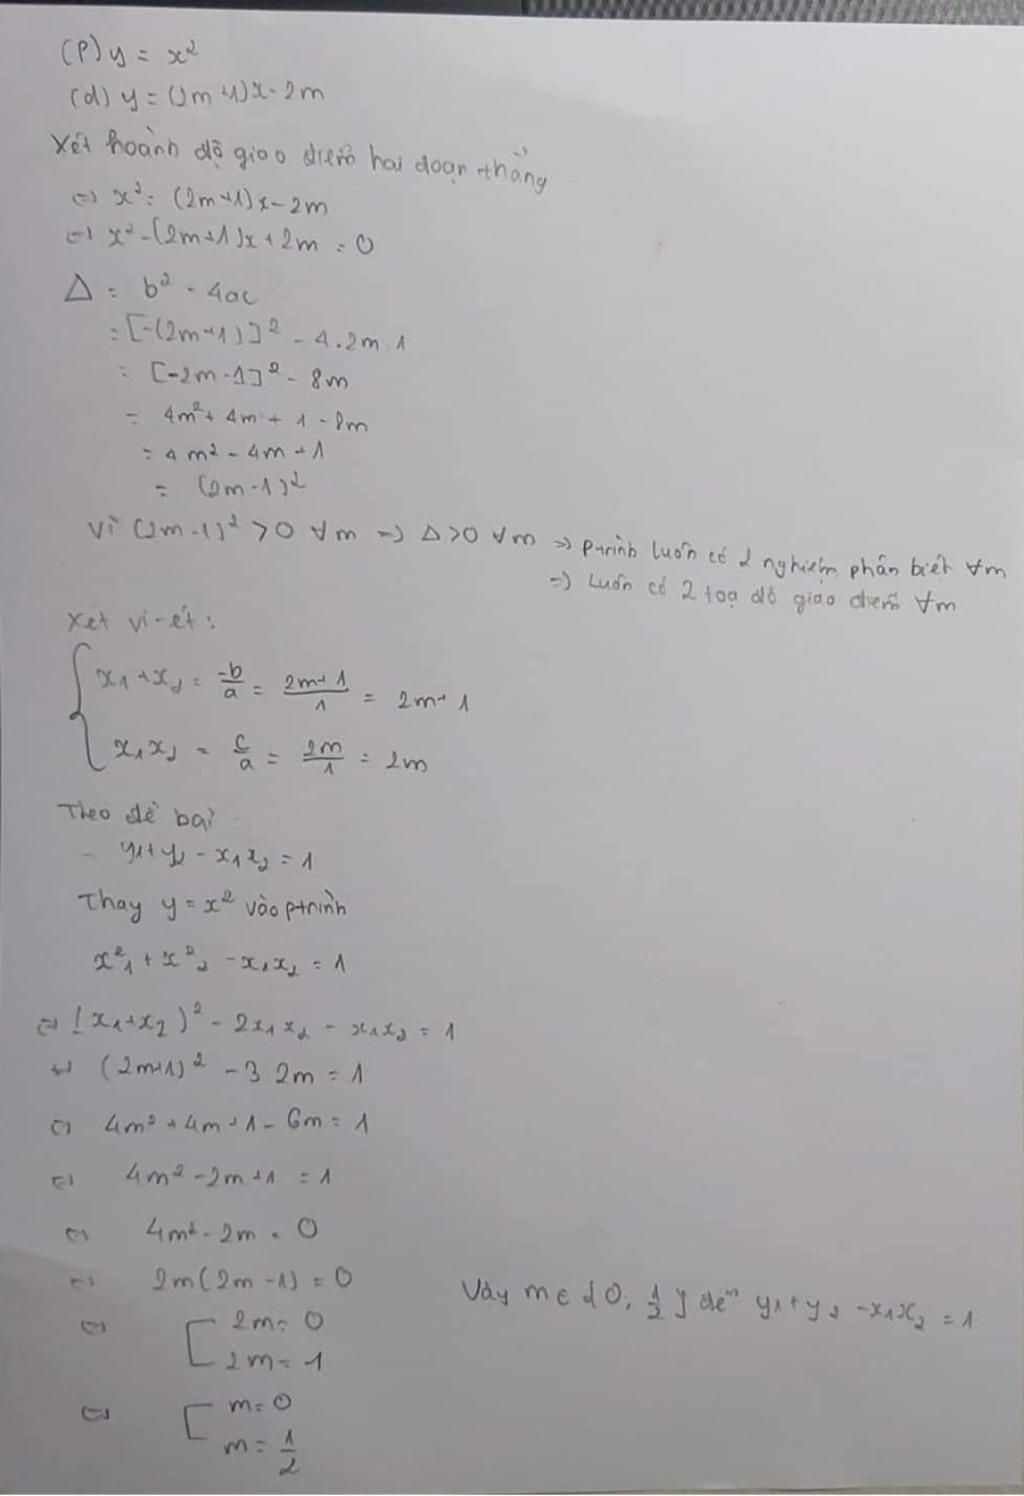 (P) y = x²
(d) y = (2m+1)x - 2m
Xét hoành độ giao điểm hai đoạn thẳng
=> x² = (2m+1)x - 2m
<=> x² - (2m+1)x + 2m = 0
Δ = b² - 4ac
= [-(2m+1)]² - 4.2m.1
= [-2m-1]² - 8m
= 4m² + 4m + 1 - 8m
= 4m² - 4m + 1
= (2m-1)²
Vì (2m-1)² > 0 ∀m => Δ>0 ∀m => ptrình luôn có 2 nghiệm phân biệt ∀m
=> luôn có 2 toạ độ giao điểm ∀m
Xét vi-ét:
{ x₁+x₂ = -b/a = 2m+1/1 = 2m+1
x₁x₂ = c/a = 2m/1 = 2m
Theo đề bài
y₁+y₂ - x₁x₂ = 1
Thay y = x² vào ptrình
x²₁ + x²₂ - x₁x₂ = 1
<=> (x₁+x₂)² - 2x₁x₂ - x₁x₂ = 1
<=> (2m+1)² - 3.2m = 1
<=> 4m² + 4m + 1 - 6m = 1
<=> 4m² - 2m + 1 = 1
<=> 4m² - 2m = 0
<=> 2m(2m-1) = 0
<=> [ 2m = 0
2m = 1
<=> [ m = 0
m = 1/2
Vậy m ∈ {0, 1/2} để y₁+y₂ - x₁x₂ = 1